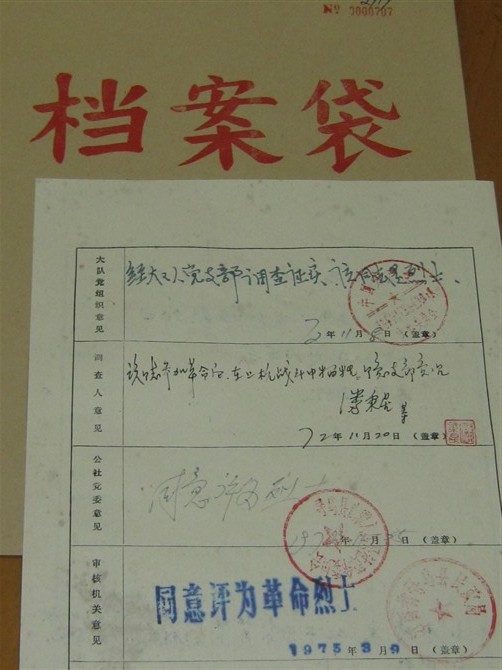 № 3000707
档案袋
大队党组织意见
经大队党支部调查证实、该同志是烈士、
72年11月8日 (盖章)
调查人意见
该同志参加革命后、在上杭战斗中牺牲、同意支部意见
等
72年11月20日 (盖章)
公社党委意见
同意评为烈士
月 (盖章)
审核机关意见
同意评为革命烈士
1975 3 9 (盖章)